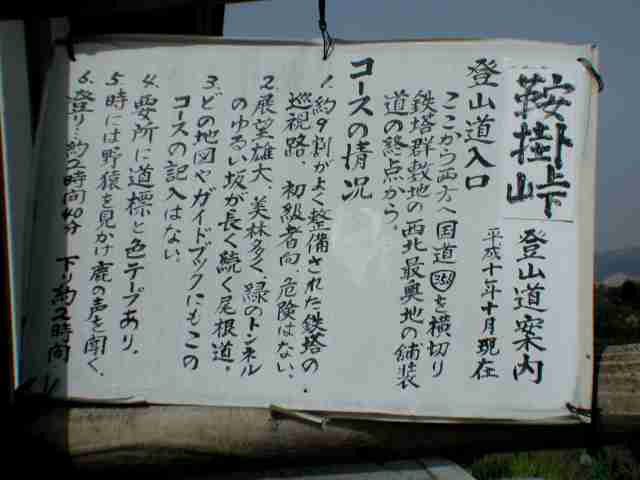 鞍掛峠
登山道案内
平成十年十月現在
登山道入口
ここから西方へ国道352を横切り
鉄塔群敷地の西北最奥地の舗装
道の終点から。
コースの情況
1. 約9割がよく整備された鉄塔の
巡視路、初級者向、危険はない。
2. 展望雄大、美林多く、緑のトンネル
のゆるい坂が長く続く尾根道。
3. どの地図やガイドブックにもこの
コースの記入はない
4. 要所に道標と色テープあり。
5. 時には野猿を見かけ鹿の声を聞く。
6. 登り…約2時間40分 下り約2時間